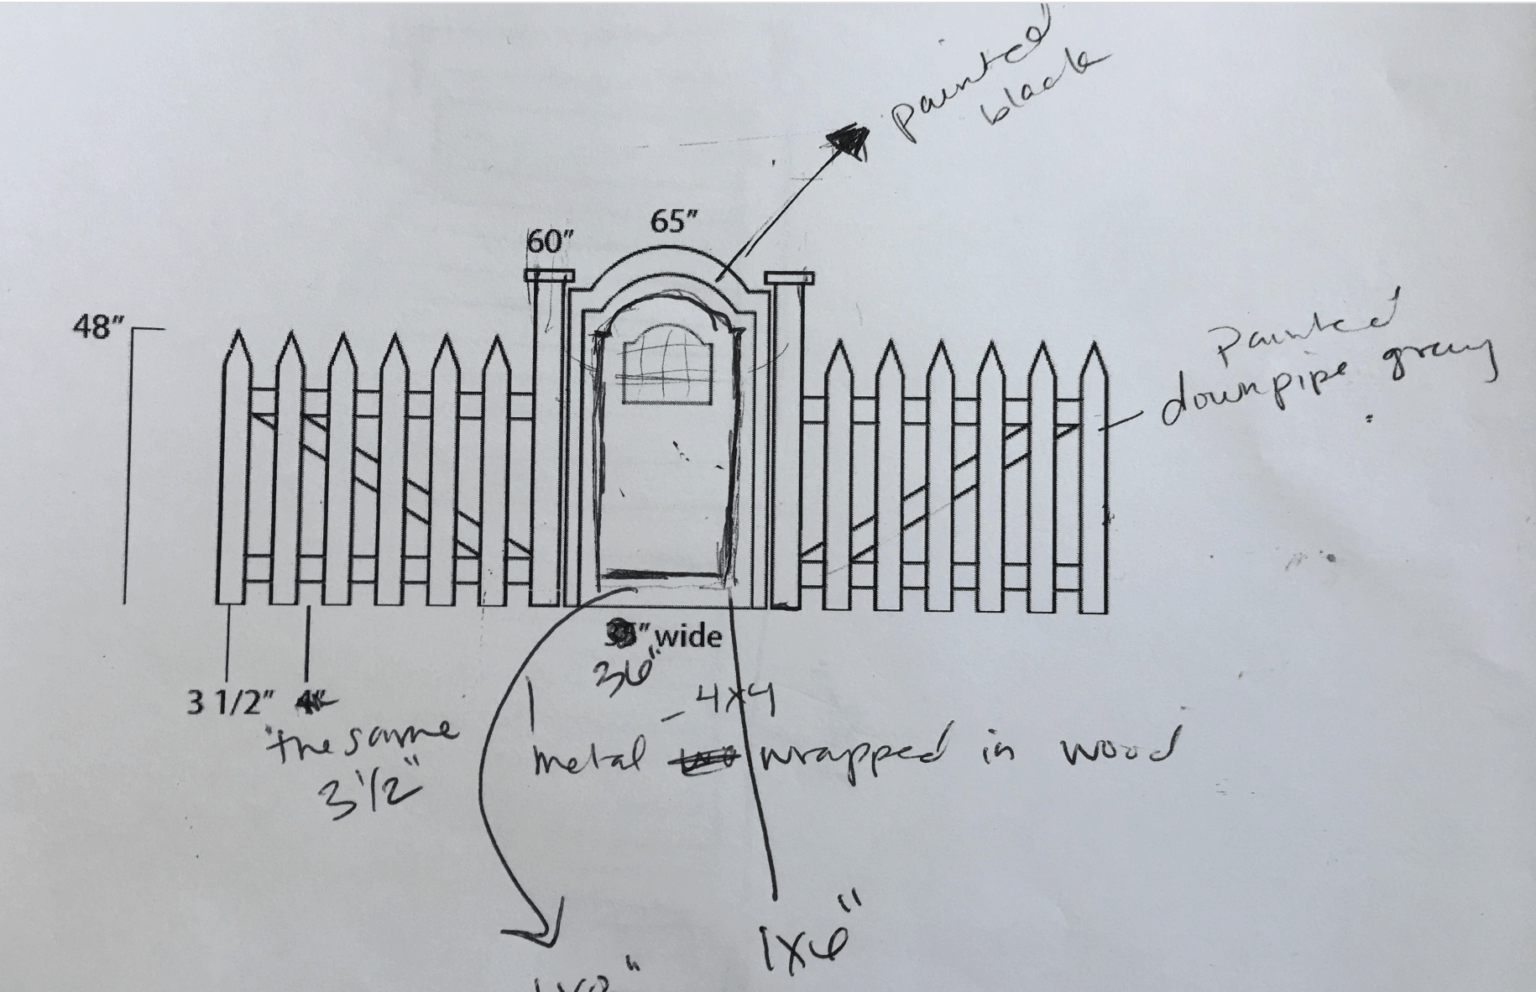 painted
black
65"
60"
48"
Painted
downpipe gray
wide
36"
3 1/2"
4x4
the same
3 1/2"
metal wrapped in wood
1x6"